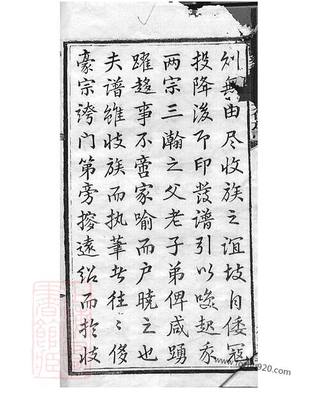 别無由尽收族之谊故自倭冠
投降後即印發譜引以喚起我
两宗三瀚之父老子弟俾咸踴
躍趋事不啻家喻而户曉之也
夫谱雖收族而执筆者往〻侈
豪宗誇门第旁搜遠绍而於歧